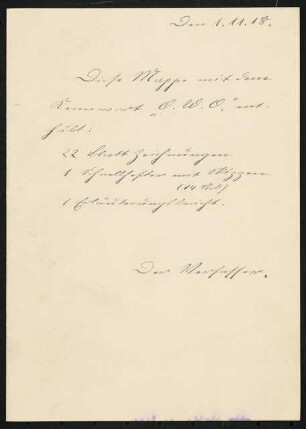 Den 1.11.18.
Diese Mappe mit dem
Kennwort „O. W. O.“ ent-
hält:
22 Blatt Zeichnungen
1 Schnellhefter mit Skizzen
(14 Bl.)
1 Erläuterungsbericht.
Der Verfasser.